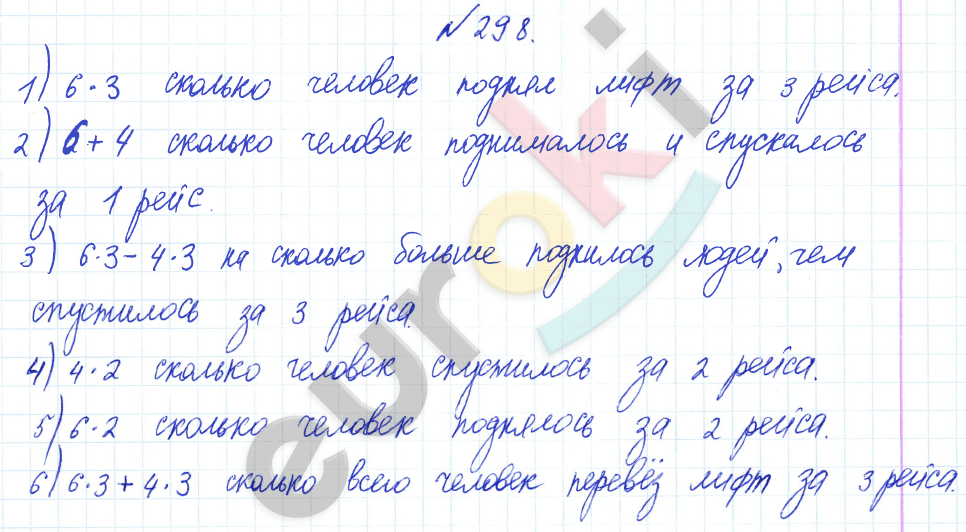 №298.
1) 6·3 сколько человек поднял лифт за 3 рейса.
2) 6+4 сколько человек поднималось и спускалось
за 1 рейс.
3) 6·3-4·3 на сколько больше поднилось людей, чем
спустилось за 3 рейса.
4) 4·2 сколько человек спустилось за 2 рейса.
5) 6·2 сколько человек поднялось за 2 рейса.
6) 6·3+4·3 сколько всего человек перевёз лифт за 3 рейса.
euroki